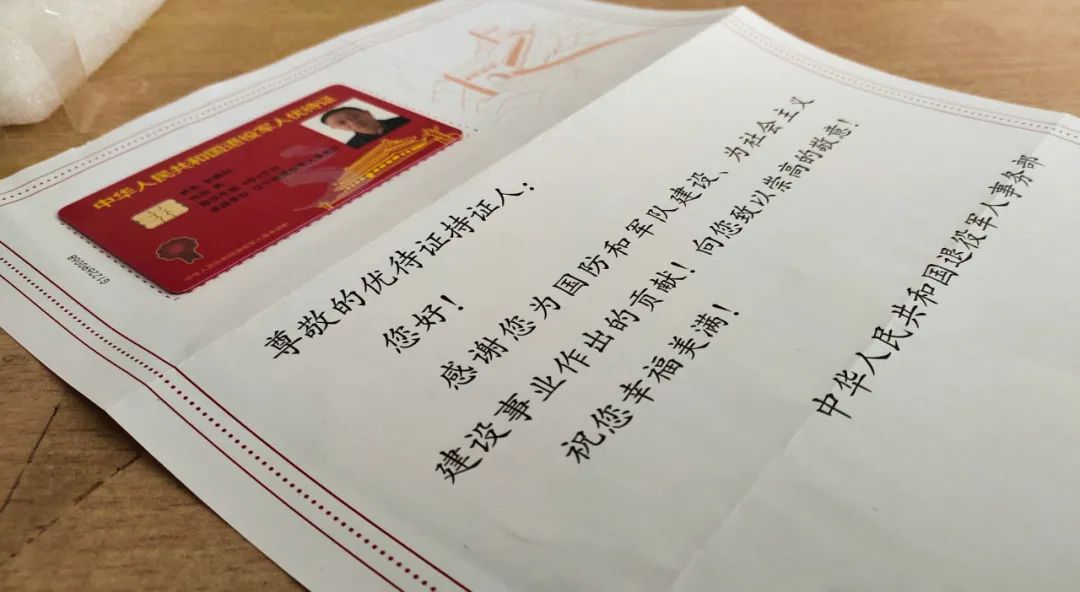 中华人民共和国退役军人优待证
尊敬的优待证持证人：
您好！
感谢您为国防和军队建设、为社会主义
建设事业作出的贡献！向您致以崇高的敬意！
祝您幸福美满！
中华人民共和国退役军人事务部